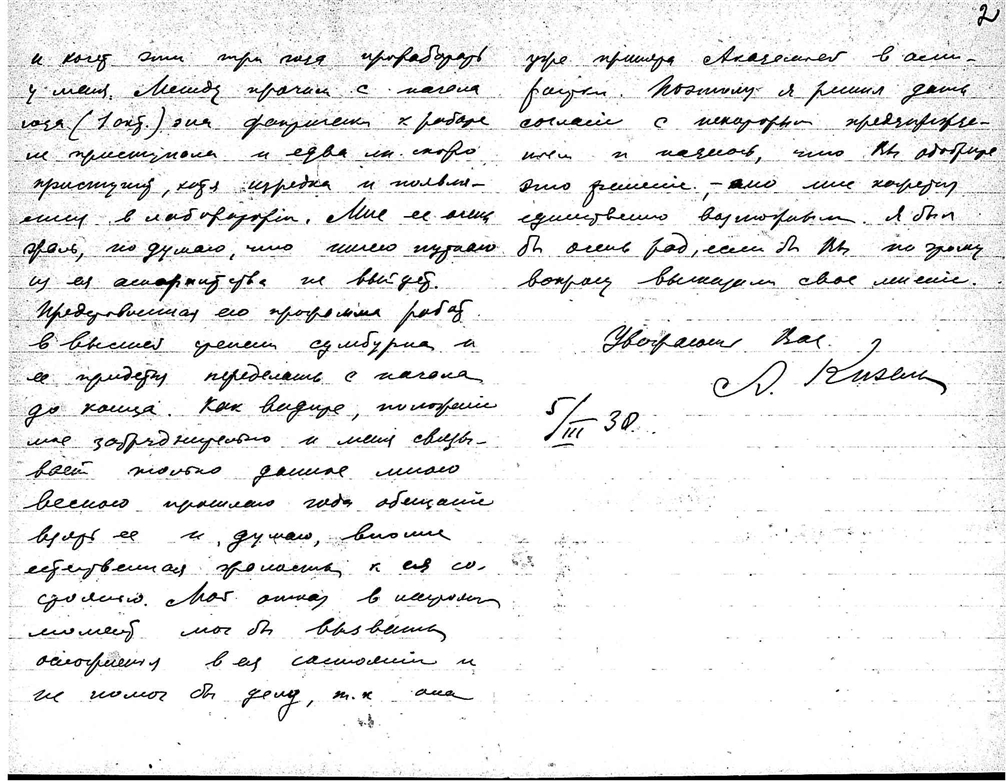 2
и хочет эти три года проработать
у меня. Между прочим с начала
года (1 окт.) она фактически к работе
не приступала и едва ли скоро
приступит, хотя изредка и появля-
ется в лаборатории. Мне ее очень
жаль, но думаю, что ничего путного
из ея аспирантства не выйдет.
Представленная ею программа работ
в высшей степени сумбурна и
ее придется переделать с начала
до конца. Как видите, положение
мое затруднительно и меня связы-
вает только данное мною
весною прошлого года обещание
взять ее и, думаю, вполне
естественная жалость к ея со-
стоянию. Мой отказ в настоящий
момент мог бы вызвать
осложнения в ея состоянии и
не помог бы делу, т.к она
уже принята Академией в аспи-
рантки. Поэтому я решил дать
согласие с некоторым предупрежде-
нием и надеюсь, что Вы одобрите
это решение, – оно мне кажется
единственно возможным. Я был
бы очень рад, если бы Вы по этому
вопросу высказали свое мнение.
Уважающий Вас
А. Кизель
5/III 30.